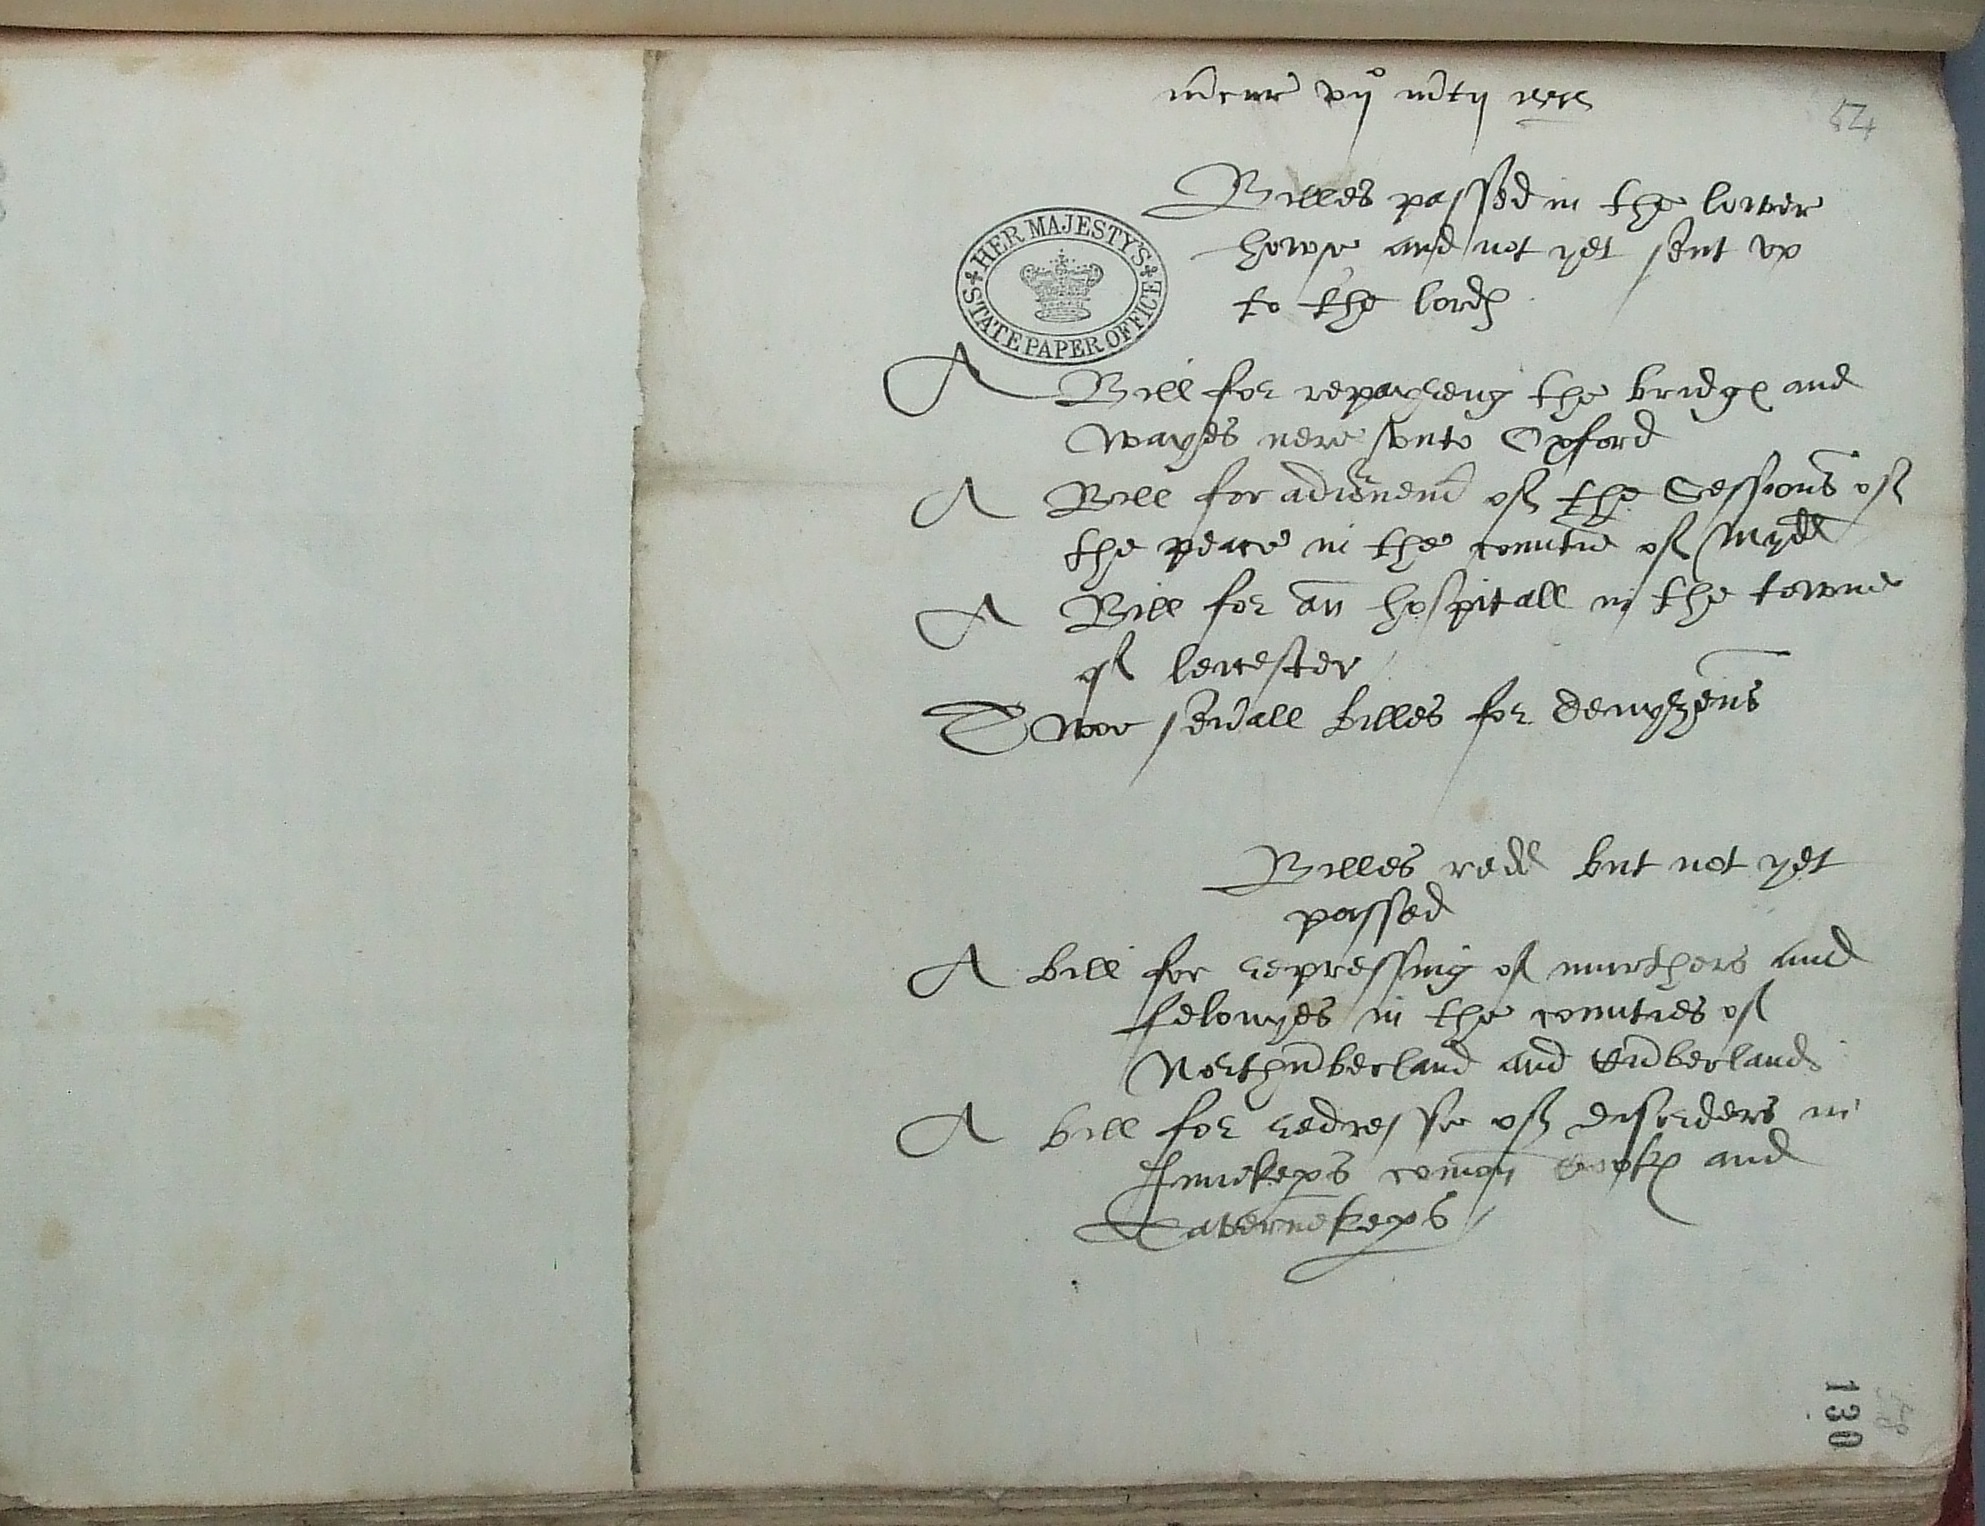 m̄cur vijº m̄tij
54
Billes passed in the lower
howse and not yet sent vp
to the lordꝭ
HER MAJESTY'S
STATE PAPER OFFICE
A Bill for repayreng the bridgꝭ and
wayes nere vnto Oxford
A Bill for adiornem̄t of the Sessions of
the peace in the countie of Mydd
A Bill for an hospitall in the towne
of leicester
Twoe seu̾all billes for denyzens
Billes redd but not yet
passed
A bill for repressing of murthers and
felonyes in the counties of
Northūberland and Cūberland
A bill for redresse of disorders in
Innekeꝑs comon Cookꝭ and
Tavernekeꝑs
130